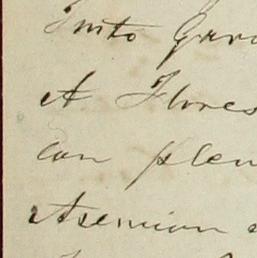 Justo Gar
A Flores
con plen
Asención